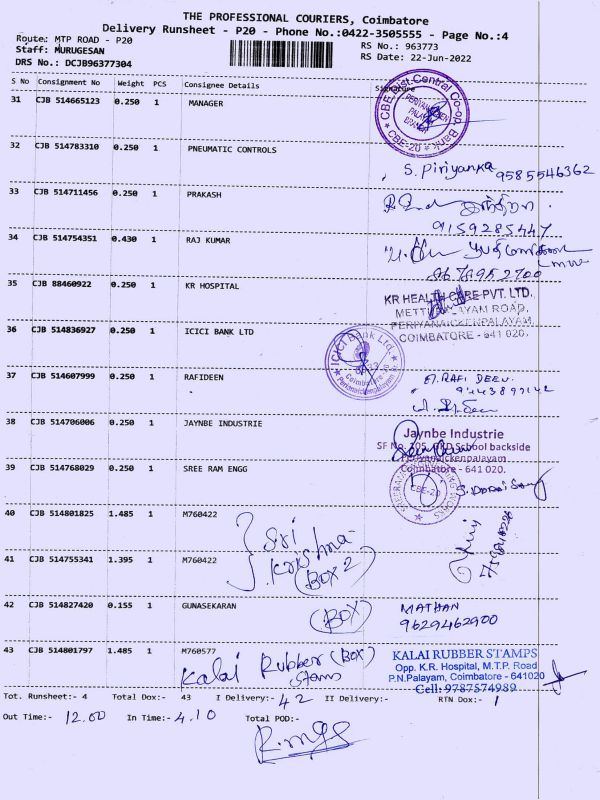 THE PROFESSIONAL COURIERS, Coimbatore
Delivery Runsheet - P20 - Phone No.:0422-3505555 - Page No.:4
Route: MTP ROAD - P20
RS No.: 963773
Staff: MURUGESAN
RS Date: 22-Jun-2022
DRS No.: DCJB96377304
S No Consignment No Weight PCS Consignee Details Signature
31 CJB 514665123 0.250 1 MANAGER
CBE Dist. Central Co-op. Bank
PERIYANAICKEN
PALAYAM
BRANCH
CBE-20
32 CJB 514783310 0.250 1 PNEUMATIC CONTROLS
S. Piriyanka 9585546362
33 CJB 514711456 0.250 1 PRAKASH
9159285447
34 CJB 514754351 0.430 1 RAJ KUMAR
35 CJB 88460922 0.250 1 KR HOSPITAL
KR HEALTH CARE PVT. LTD.
METTUPALAYAM ROAD,
PERIYANAICKENPALAYAM
COIMBATORE - 641 020.
36 CJB 514836927 0.250 1 ICICI BANK LTD
ICICI Bank Ltd.
Coimbatore
Periyanaickenpalayam
37 CJB 514607999 0.250 1 RAFIDEEN
A. RAFI DEEN.
38 CJB 514706006 0.250 1 JAYNBE INDUSTRIE
Jaynbe Industrie
School backside
Periyanaickenpalayam
Coimbatore - 641 020.
39 CJB 514768029 0.250 1 SREE RAM ENGG
CBE-20
40 CJB 514801825 1.485 1 M760422
Sri
Krishna
(BOX 2)
41 CJB 514755341 1.395 1 M760422
42 CJB 514827420 0.155 1 GUNASEKARAN
(BOX)
MATHAN
9629462900
43 CJB 514801797 1.485 1 M760577
Kalai Rubber (BOX)
KALAI RUBBER STAMPS
Opp. K.R. Hospital, M.T.P. Road
P.N.Palayam, Coimbatore - 641020
Cell: 9787574989
Tot. Runsheet:- 4 Total Dox:- 43 I Delivery:- 42 II Delivery:- RTN Dox:- 1
Out Time:- 12.00 In Time:- 4.10 Total POD:-